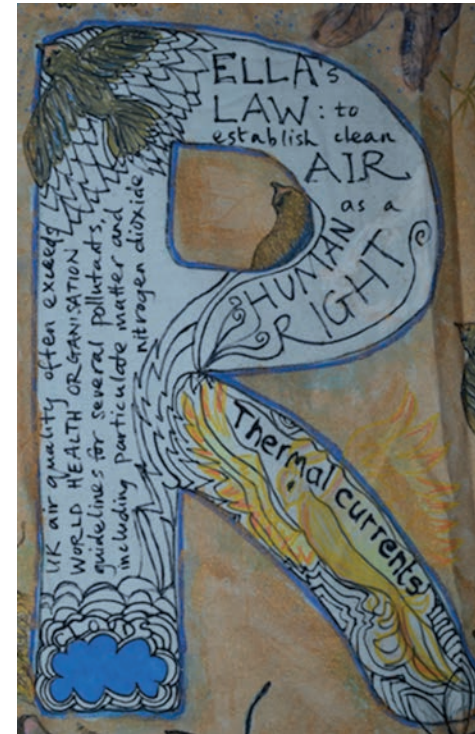 ELLA's
LAW: to
establish clean
AIR
as a
HUMAN
RIGHT
UK air quality often exceeds
WORLD HEALTH ORGANISATION
guidelines for several pollutants,
including particulate matter and
nitrogen dioxide
Thermal currents